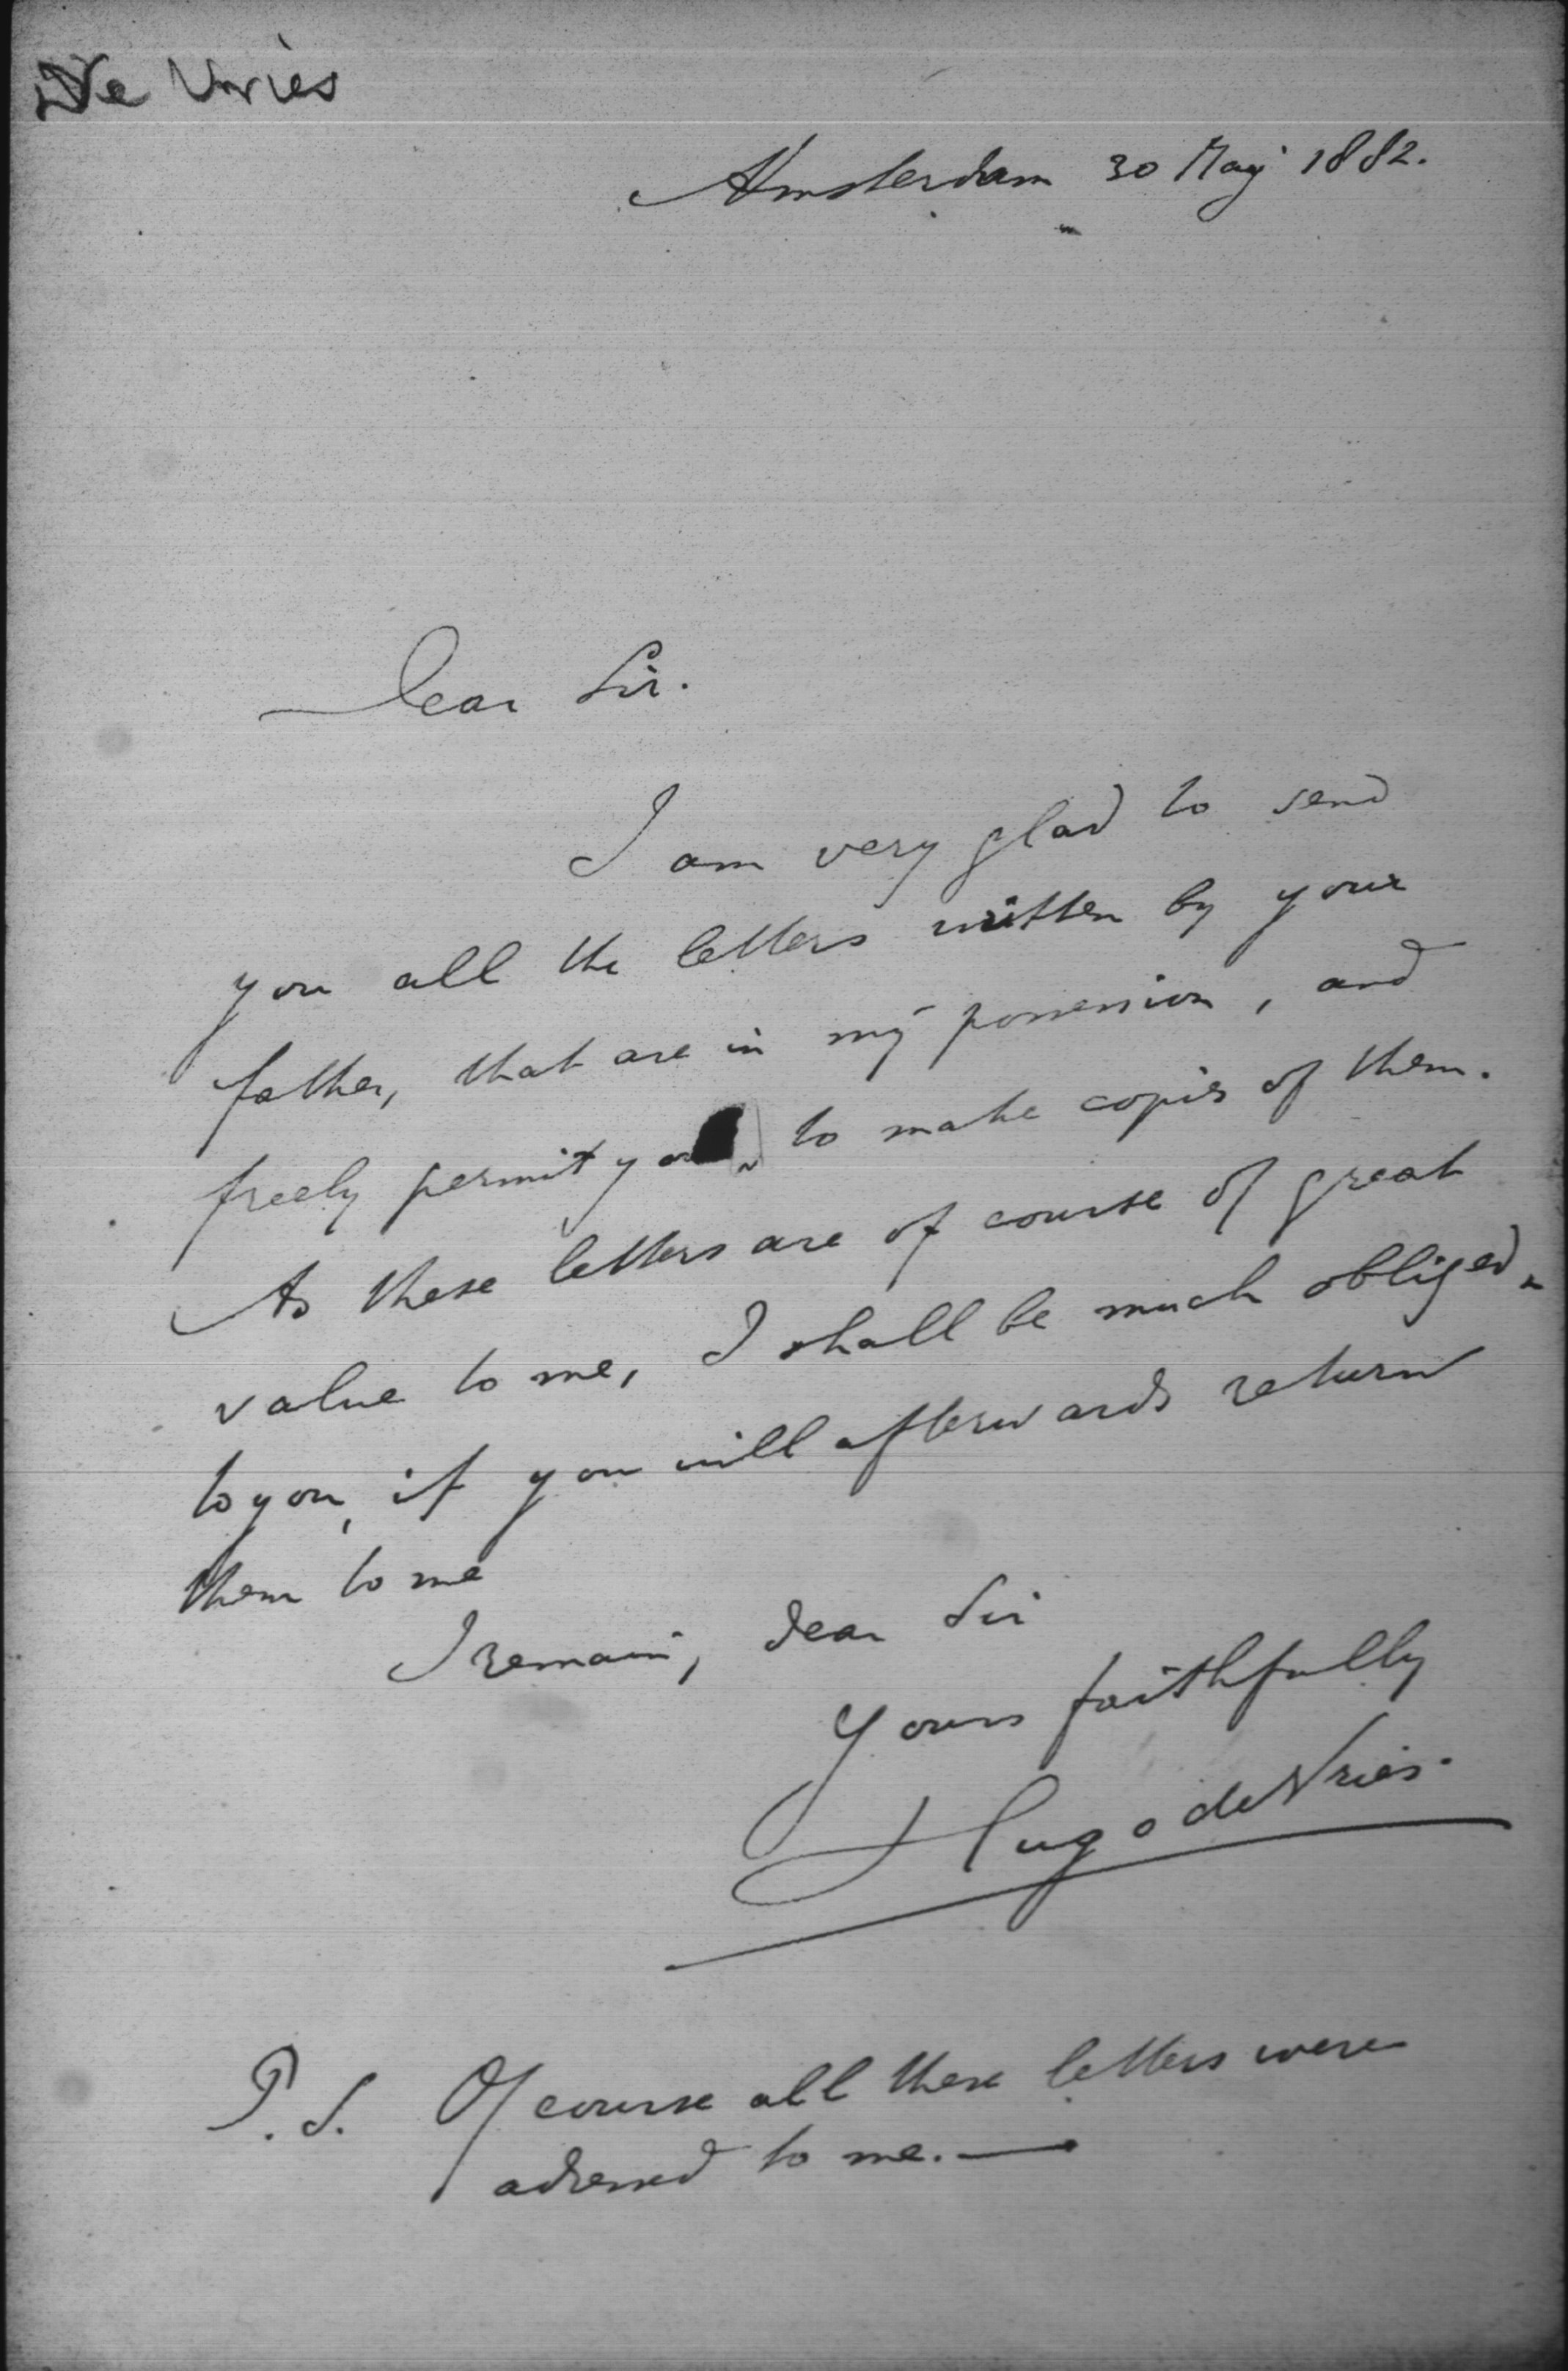 De Vries
Amsterdam 30 May 1882.
Dear Sir.
I am very glad to send
you all the letters written by your
father, that are in my possession, and
freely permit you to make copies of them.
As these letters are of course of great
value to me, I shall be much obliged
to you, if you will afterwards return
them to me
I remain, dear Sir
Yours faithfully
Hugo de Vries.
P.S. Of course all these letters were
adressed to me.—